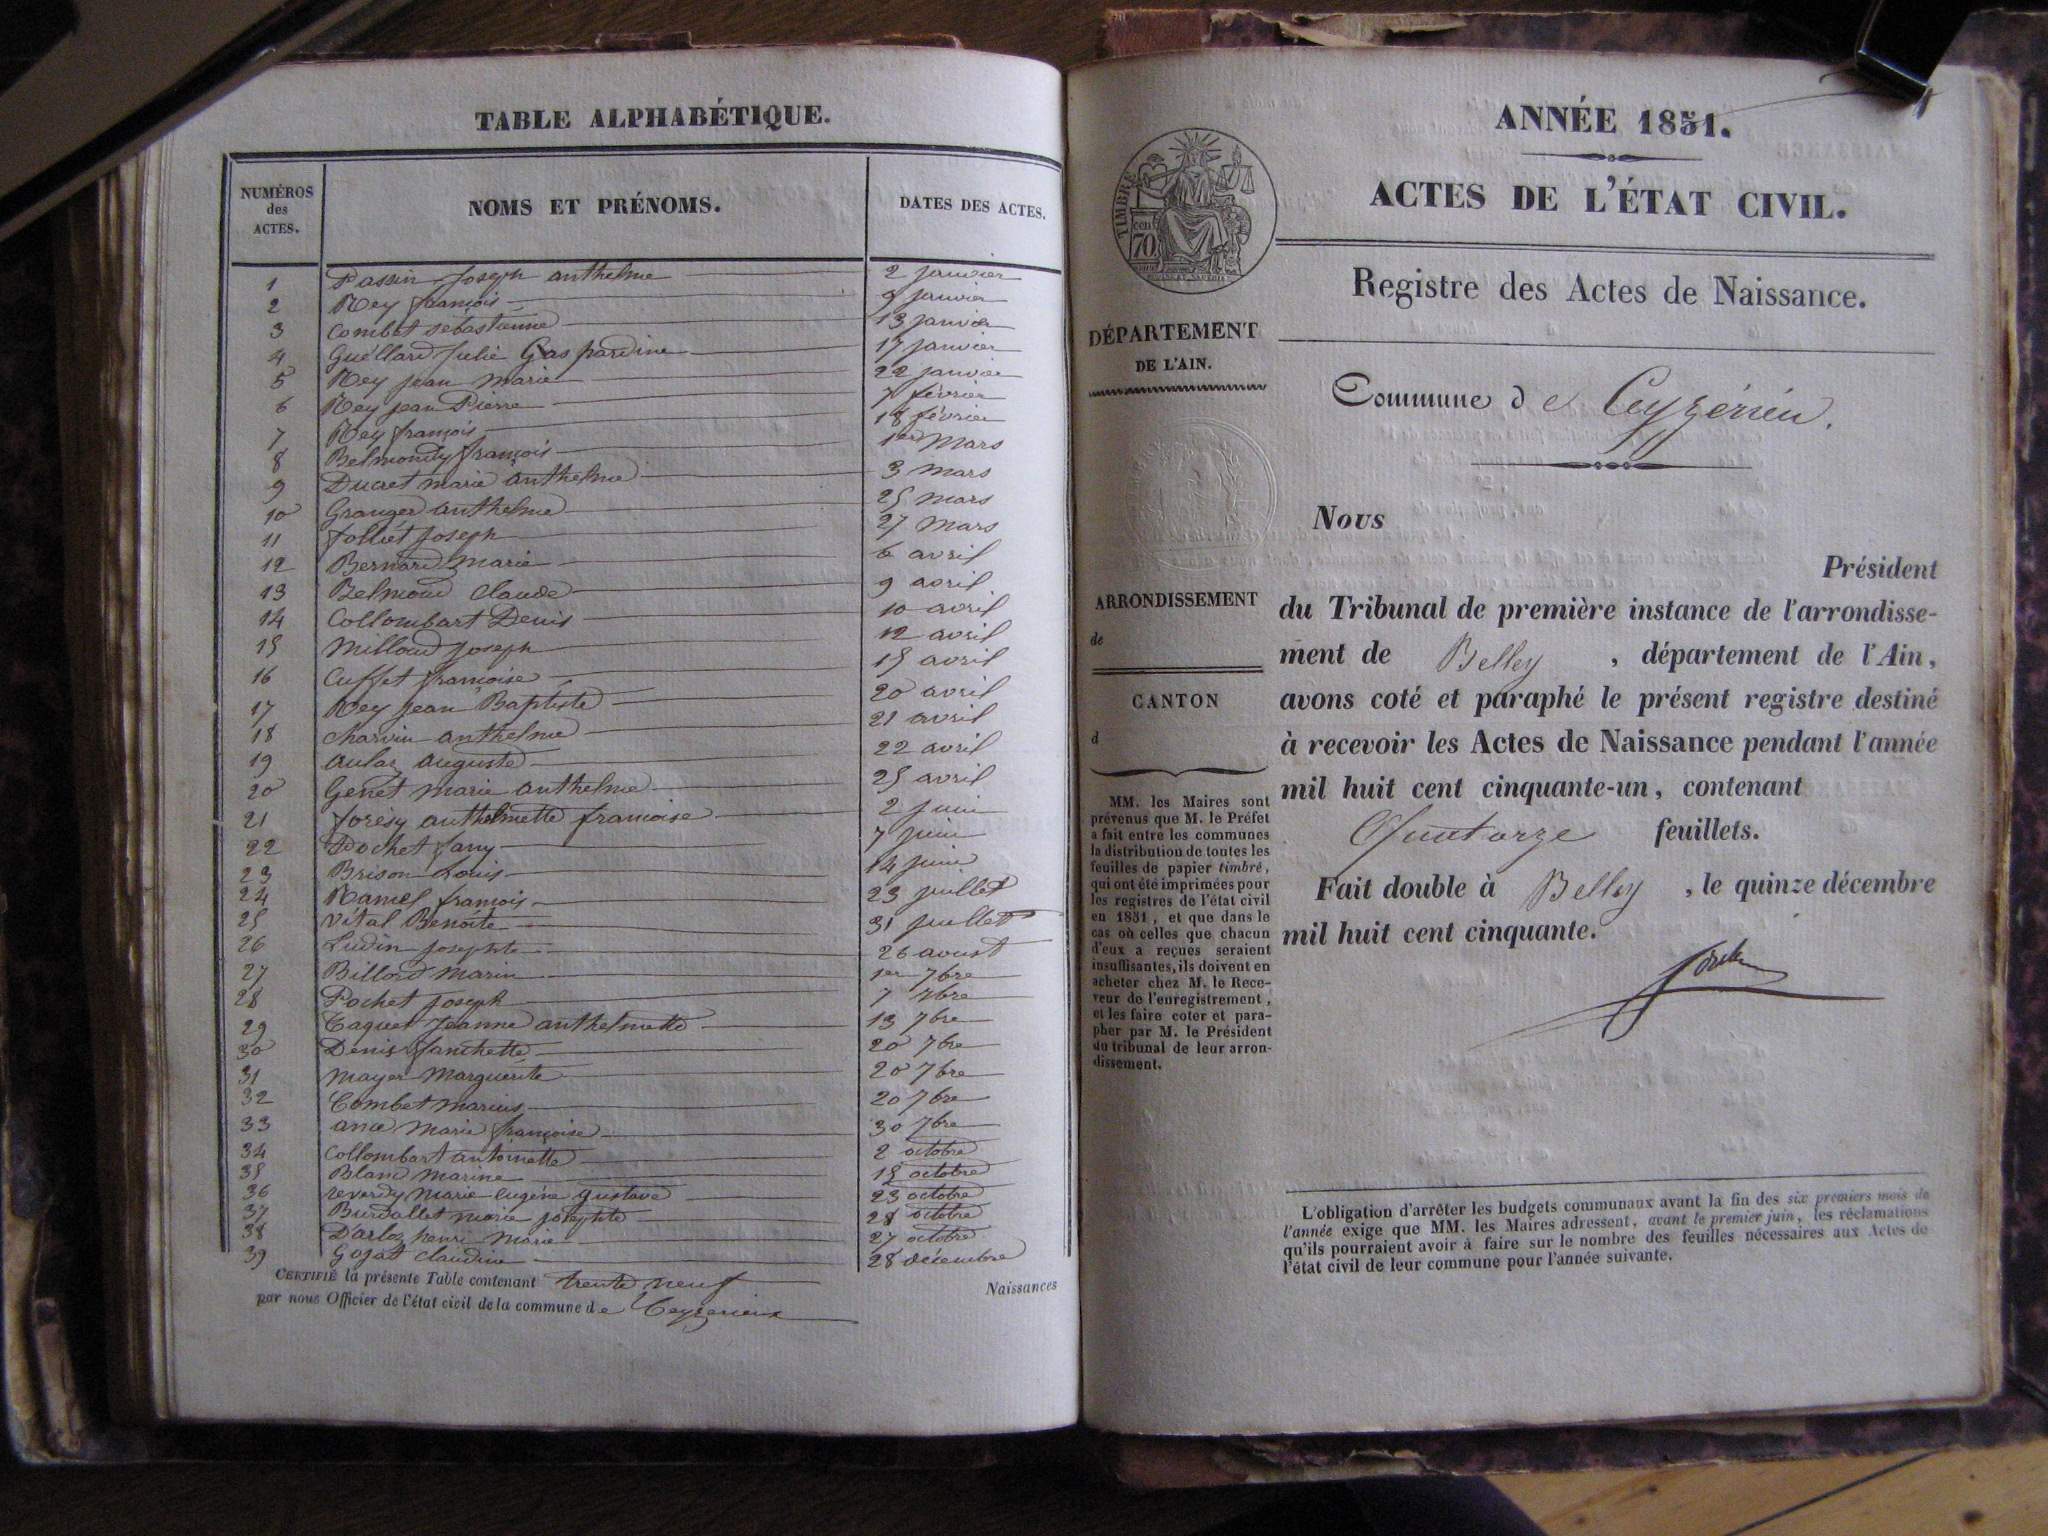 TABLE ALPHABÉTIQUE.
NUMÉROS des ACTES. NOMS ET PRÉNOMS. DATES DES ACTES.
1 Passin Joseph anthelme 2 janvier
2 Rey françois 9 janvier
3 Combet sébastienne 13 janvier
4 Guéllard Julie Gaspardine 17 janvier
5 Rey jean marie 22 janvier
6 Rey jean Pierre 7 février
7 Rey françois 18 février
8 Belmondy françois 1er Mars
9 Ducret marie anthelme 3 mars
10 Granger anthelme 25 mars
11 Jolliet Joseph 27 mars
12 Bernard Marie 6 avril
13 Belmond Claude 9 avril
14 Collombart Denis 10 avril
15 Milloud Joseph 12 avril
16 Cuffet françoise 15 avril
17 Rey Jean Baptiste 20 avril
18 Charvin anthelme 21 avril
19 aulaz auguste 22 avril
20 Genet marie anthelme 25 avril
21 forésy anthelmette françoise 2 juin
22 Pochet fany 7 juin
23 Brison Louis 14 juin
24 Ramel françois 23 juillet
25 Vital Benoîte 31 juillet
26 Ludin josephte 26 avoust
27 Billord Marin 1er 7bre
28 Pochet joseph 7 7bre
29 Taquet Jeanne anthelmette 13 7bre
30 Denis fanchette 20 7bre
31 Mayer Marguerite 20 7bre
32 Combet Marius 20 7bre
33 Marie françoise 30 7bre
34 Collombart antoinette 2 octobre
35 Blanc Marine 15 octobre
36 reverdy Marie eugéne gustave 23 octobre
37 Burdallet marie josephte 28 octobre
38 D'arloz henri Marie 27 octobre
39 Gojat Claudine 28 décembre
CERTIFIÉ la présente Table contenant trente neuf Naissances
par nous Officier de l'état civil de la commune de Ceyzerieux
ANNÉE 1851.
ACTES DE L'ÉTAT CIVIL.
TIMBRE
70 cen
Registre des Actes de Naissance.
DÉPARTEMENT
DE L'AIN.
Commune de Ceyzérieu.
Nous
Président
ARRONDISSEMENT
de
CANTON
d
du Tribunal de première instance de l'arrondisse-
ment de Belley, département de l'Ain,
avons coté et paraphé le présent registre destiné
à recevoir les Actes de Naissance pendant l'année
mil huit cent cinquante-un, contenant
Quatorze feuillets.
Fait double à Belley, le quinze décembre
mil huit cent cinquante.
MM. les Maires sont
prévenus que M. le Préfet
a fait entre les communes
la distribution de toutes les
feuilles de papier timbré,
qui ont été imprimées pour
les registres de l'état civil
en 1851, et que dans le
cas où celles que chacun
d'eux a reçues seraient
insuffisantes, ils doivent en
acheter chez M. le Rece-
veur de l'enregistrement,
et les faire coter et para-
pher par M. le Président
du tribunal de leur arron-
dissement.
L'obligation d'arrêter les budgets communaux avant la fin des six premiers mois de
l'année exige que MM. les Maires adressent, avant le premier juin, les réclamations
qu'ils pourraient avoir à faire sur le nombre des feuilles nécessaires aux Actes de
l'état civil de leur commune pour l'année suivante.